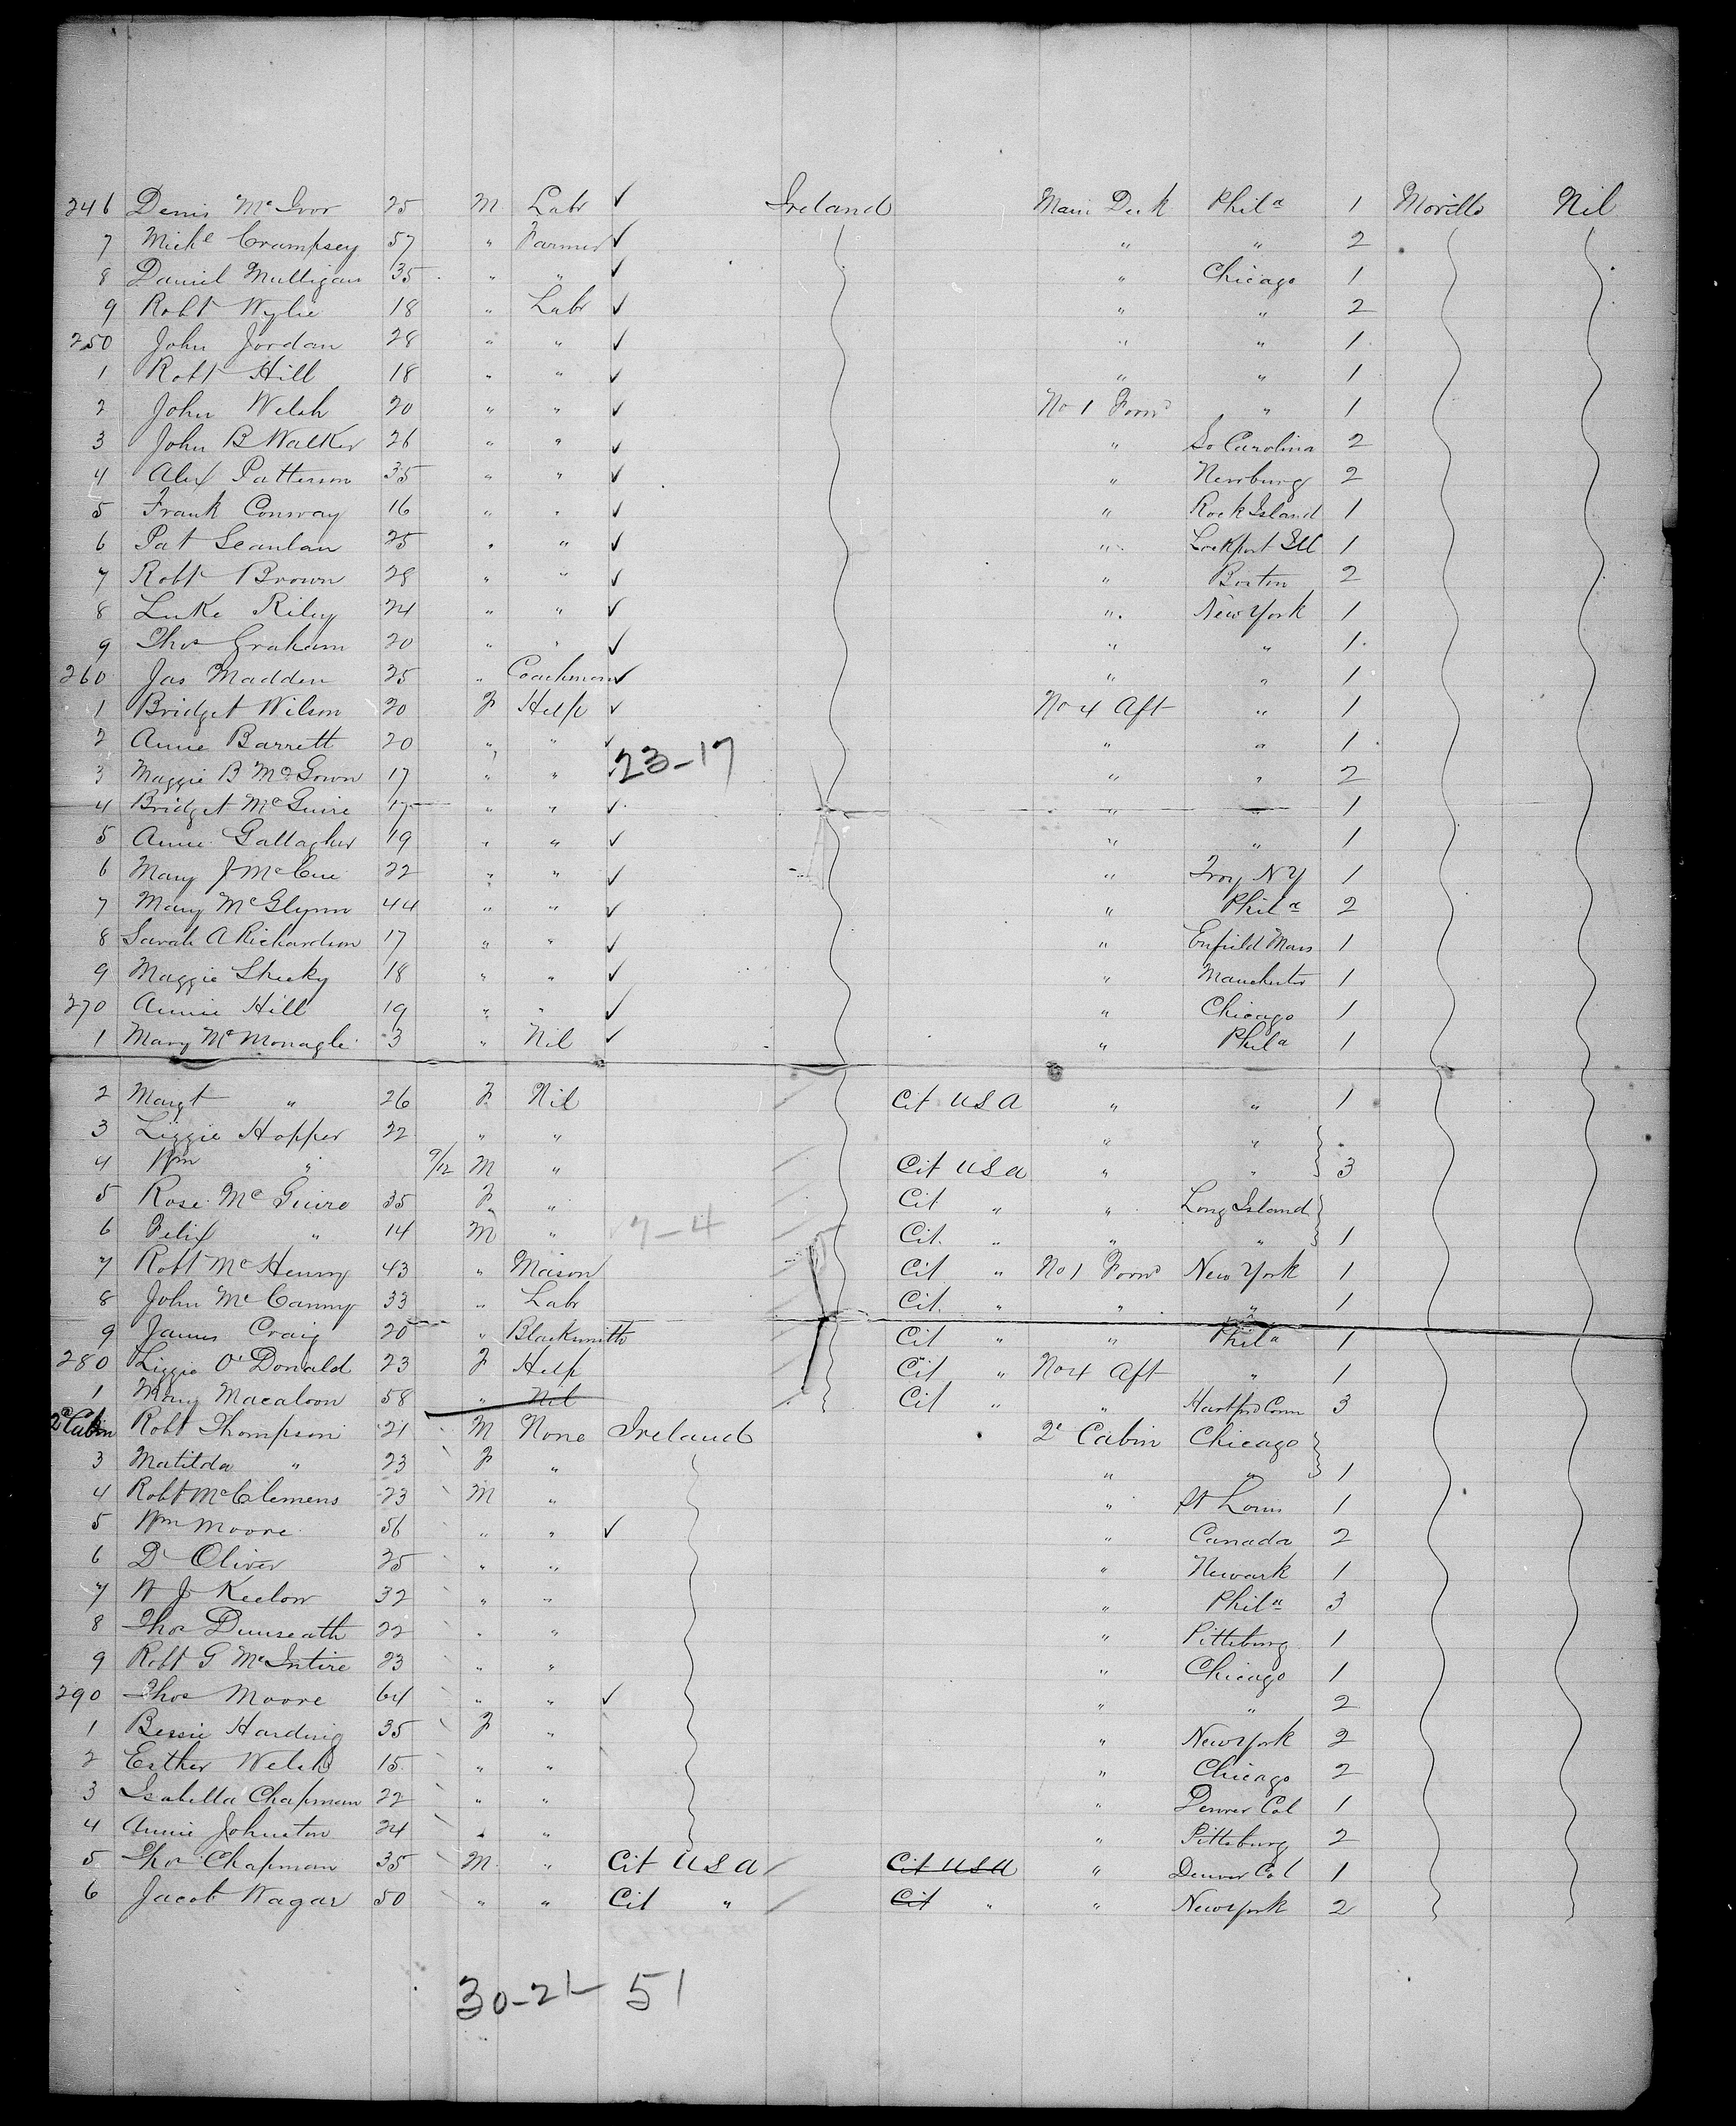 246 Denis McIvor 25 M Labr ✓ Ireland Main Deck Phila 1 Moville Nil
7 Michl Crampsey 57 " Farmer ✓ " " 2
8 Daniel Mulligan 35 " " ✓ " Chicago 1
9 Robt Wylie 18 " Labr ✓ " " 2
250 John Jordan 28 " " ✓ " " 1
1 Robt Hill 18 " " ✓ " " 1
2 John Welsh 20 " " ✓ No 1 Forwd " 1
3 John B Walker 26 " " ✓ " So Carolina 2
4 Alex Patterson 35 " " ✓ " Newburg 2
5 Frank Conway 16 " " ✓ " Rock Island 1
6 Pat Scanlan 25 " " ✓ " Lockport Ill 1
7 Robt Brown 28 " " ✓ " Boston 2
8 Luke Riley 24 " " ✓ " New York 1
9 Thos Graham 20 " " ✓ " " 1
260 Jas Madden 25 " Coachman ✓ " " 1
1 Bridget Wilson 20 F Help ✓ No 4 Aft " 1
2 Annie Barrett 20 " " ✓ " " 1
23-17
3 Maggie B McGown 17 " " ✓ " " 2
4 Bridget McGuire 17 " " ✓ " " 1
5 Annie Gallagher 19 " " ✓ " " 1
6 Mary J McCue 22 " " ✓ " Troy NY 1
7 Mary McGlynn 44 " " ✓ " Phila 2
8 Sarah A Richardson 17 " " ✓ " Enfield Mass 1
9 Maggie Sheeky 18 " " ✓ " Manchester 1
270 Annie Hill 19 " " ✓ " Chicago 1
1 Mary McMonagle 3 " Nil ✓ " Phila 1
2 Margt " 26 F Nil Cit USA " " 1
3 Lizzie Hopper 22 " " " "
4 Wm " 9/12 M " Cit USA " " 3
5 Rose McGuire 35 F " Cit " " Long Island
6 Felix " 14 M " 7-4 Cit. " " " 1
7 Robt McHenry 43 " Mason Cit " No 1 Forwd New York 1
8 John McCanny 33 " Labr Cit. " " " 1
9 James Craig 20 " Blacksmith Cit " " Phila 1
280 Lizzie O'Donald 23 F Help Cit " No 4 Aft " 1
1 Mary Macaloon 58 " Nil Cit " " Hartford Conn 3
2d Cabin Robt Thompson 21 M None Ireland 2d Cabin Chicago
3 Matilda " 23 F " " " 1
4 Robt McClemens 23 M " " St Louis 1
5 Wm Moore 56 " " ✓ " Canada 2
6 D Oliver 35 " " " Newark 1
7 W J Keelow 32 " " " Phila 3
8 Thos Dunseath 22 " " " Pittsburg 1
9 Robt G McIntire 23 " " " Chicago 1
290 Thos Moore 64 " " ✓ " " 2
1 Bessie Harding 35 F " " New York 2
2 Esther Welsh 15 " " " Chicago 2
3 Isabella Chapman 22 " " " Denver Col 1
4 Annie Johnston 24 " " " Pittsburg 2
5 Thos Chapman 35 M " Cit USA Cit USA " Denver Col 1
6 Jacob Wagar 50 " " Cit " Cit " " New York 2
30-21- 51